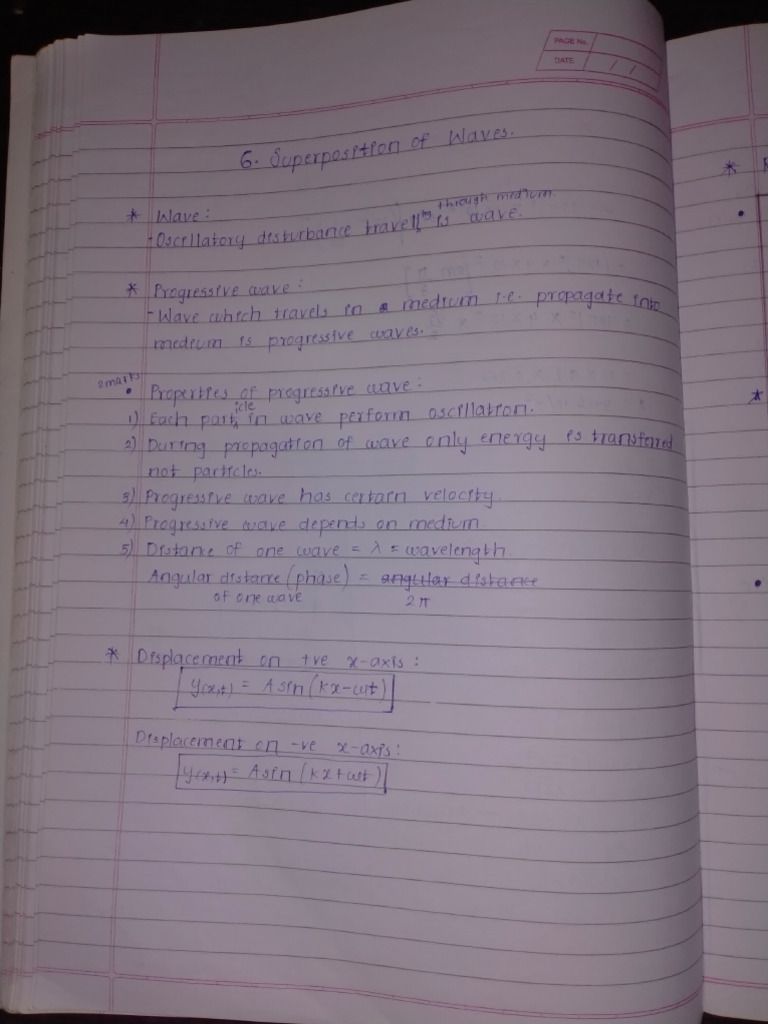 PAGE No.
DATE / /
6. Superposition of Waves.
* Wave:
through medium
- Oscillatory disturbance travelling is wave.
* Progressive wave:
- Wave which travels in a medium i.e. propagate into
medium is progressive waves.
2marks
• Properties of progressive wave:
1) Each particle in wave perform oscillation.
2) During propagation of wave only energy is transferred
not particles.
3) Progressive wave has certain velocity
4) Progressive wave depends on medium
5) Distance of one wave = λ = wavelength
Angular distance (phase) = angular distance
of one wave 2π
* Displacement on +ve x-axis:
y(x,t) = A sin (kx-ωt)
Displacement on -ve x-axis:
y(x,t) = A sin (kx+ωt)